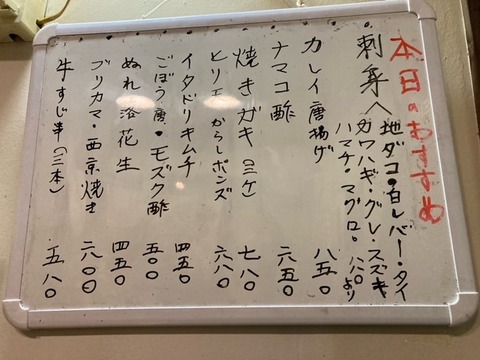 本日のおすすめ
・刺身へ地ダコ・白レバー・タイ
カワハギ・グレ・スズキ
ハマチ・マグロ。八八〇より
カレイ唐揚げ 八五〇
ナマコ酢 六五〇
焼きガキ(三ケ) 七八〇
からしポンズ 六八〇
イタドリキムチ 四五〇
ごぼう唐・モズク酢 五〇〇
ぬれ落花生 四五〇
ブリカマ・西京焼き 六〇〇
牛すじ串(三本) 五八〇